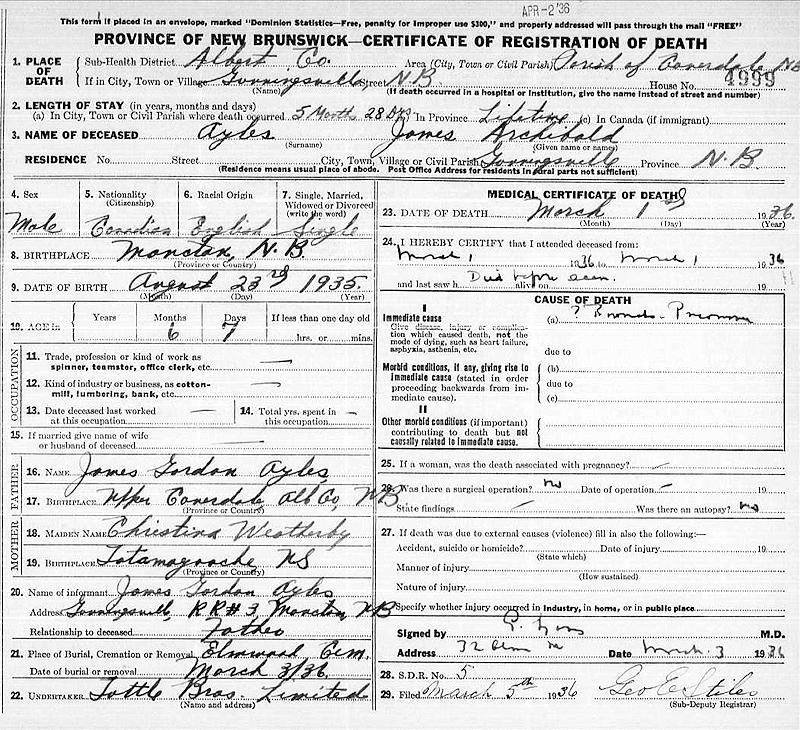 APR-2'36
This form if placed in an envelope, marked "Dominion Statistics—Free, penalty for improper use $300," and properly addressed will pass through the mail "FREE"
PROVINCE OF NEW BRUNSWICK—CERTIFICATE OF REGISTRATION OF DEATH
1. PLACE OF DEATH Sub-Health District Albert Co. Area (City, Town or Civil Parish) Parish of Coverdale NB
If in City, Town or Village Gunningsville Street N.B. House No. 4999
(Name) (If death occurred in a hospital or institution, give the name instead of street and number)
2. LENGTH OF STAY (in years, months and days)
(a) In City, Town or Civil Parish where death occurred 5 Month 28 Dys In Province Lifetime (c) In Canada (if immigrant)
3. NAME OF DECEASED Ayles James Archibald
(Surname) (Given name or names)
RESIDENCE No. Street City, Town, Village or Civil Parish Gunningsville Province N.B.
(Residence means usual place of abode. Post Office Address for residents in rural parts not sufficient)
4. Sex 5. Nationality (Citizenship) 6. Racial Origin 7. Single, Married, Widowed or Divorced (write the word)
Male Canadian English Single
8. BIRTHPLACE Moncton, N.B.
(Province or Country)
9. DATE OF BIRTH August 23rd 1935
(Month) (Day) (Year)
10. AGE in Years Months Days If less than one day old
6 7 hrs. or mins.
OCCUPATION
11. Trade, profession or kind of work as spinner, teamster, office clerk, etc. —
12. Kind of industry or business, as cotton-mill, lumbering, bank, etc. —
13. Date deceased last worked at this occupation — 14. Total yrs. spent in this occupation. —
15. If married give name of wife or husband of deceased —
FATHER
16. NAME James Gordon Ayles
17. BIRTHPLACE Upper Coverdale Alb Co, NB
(Province or Country)
MOTHER
18. MAIDEN NAME Christina Weatherby
19. BIRTHPLACE Tatamagouche NS
(Province or Country)
20. Name of informant James Gordon Ayles
Address Gunningsville RR#3 Moncton, NB
Relationship to deceased Father
21. Place of Burial, Cremation or Removal Elmwood Cem.
Date of burial or removal March 3/36.
22. UNDERTAKER Tuttle Bros. Limited
(Name and address)
MEDICAL CERTIFICATE OF DEATH
23. DATE OF DEATH March 1st 1936
(Month) (Day) (Year)
24. I HEREBY CERTIFY that I attended deceased from:
March 1 1936 to March 1 1936
and last saw h alive on Died before seen. 19
CAUSE OF DEATH
I
Immediate cause (a) ? Broncho-Pneumonia
Give disease, injury or complication which caused death, not the mode of dying, such as heart failure, asphyxia, asthenia, etc.
due to
Morbid conditions, if any, giving rise to immediate cause (stated in order proceeding backwards from immediate cause).
(b)
due to
(c)
II
Other morbid conditions (if important) contributing to death but not causally related to immediate cause.
25. If a woman, was the death associated with pregnancy?
26. Was there a surgical operation? no Date of operation 19
State findings Was there an autopsy? no
27. If death was due to external causes (violence) fill in also the following:—
Accident, suicide or homicide? Date of injury 19
(State which)
Manner of injury
(How sustained)
Nature of injury
Specify whether injury occurred in industry, in home, or in public place
Signed by M.D.
Address 32 Date March 3 1936
28. S.D.R. No. 5
29. Filed March 5th 1936 Geo E Stiles
(Sub-Deputy Registrar)